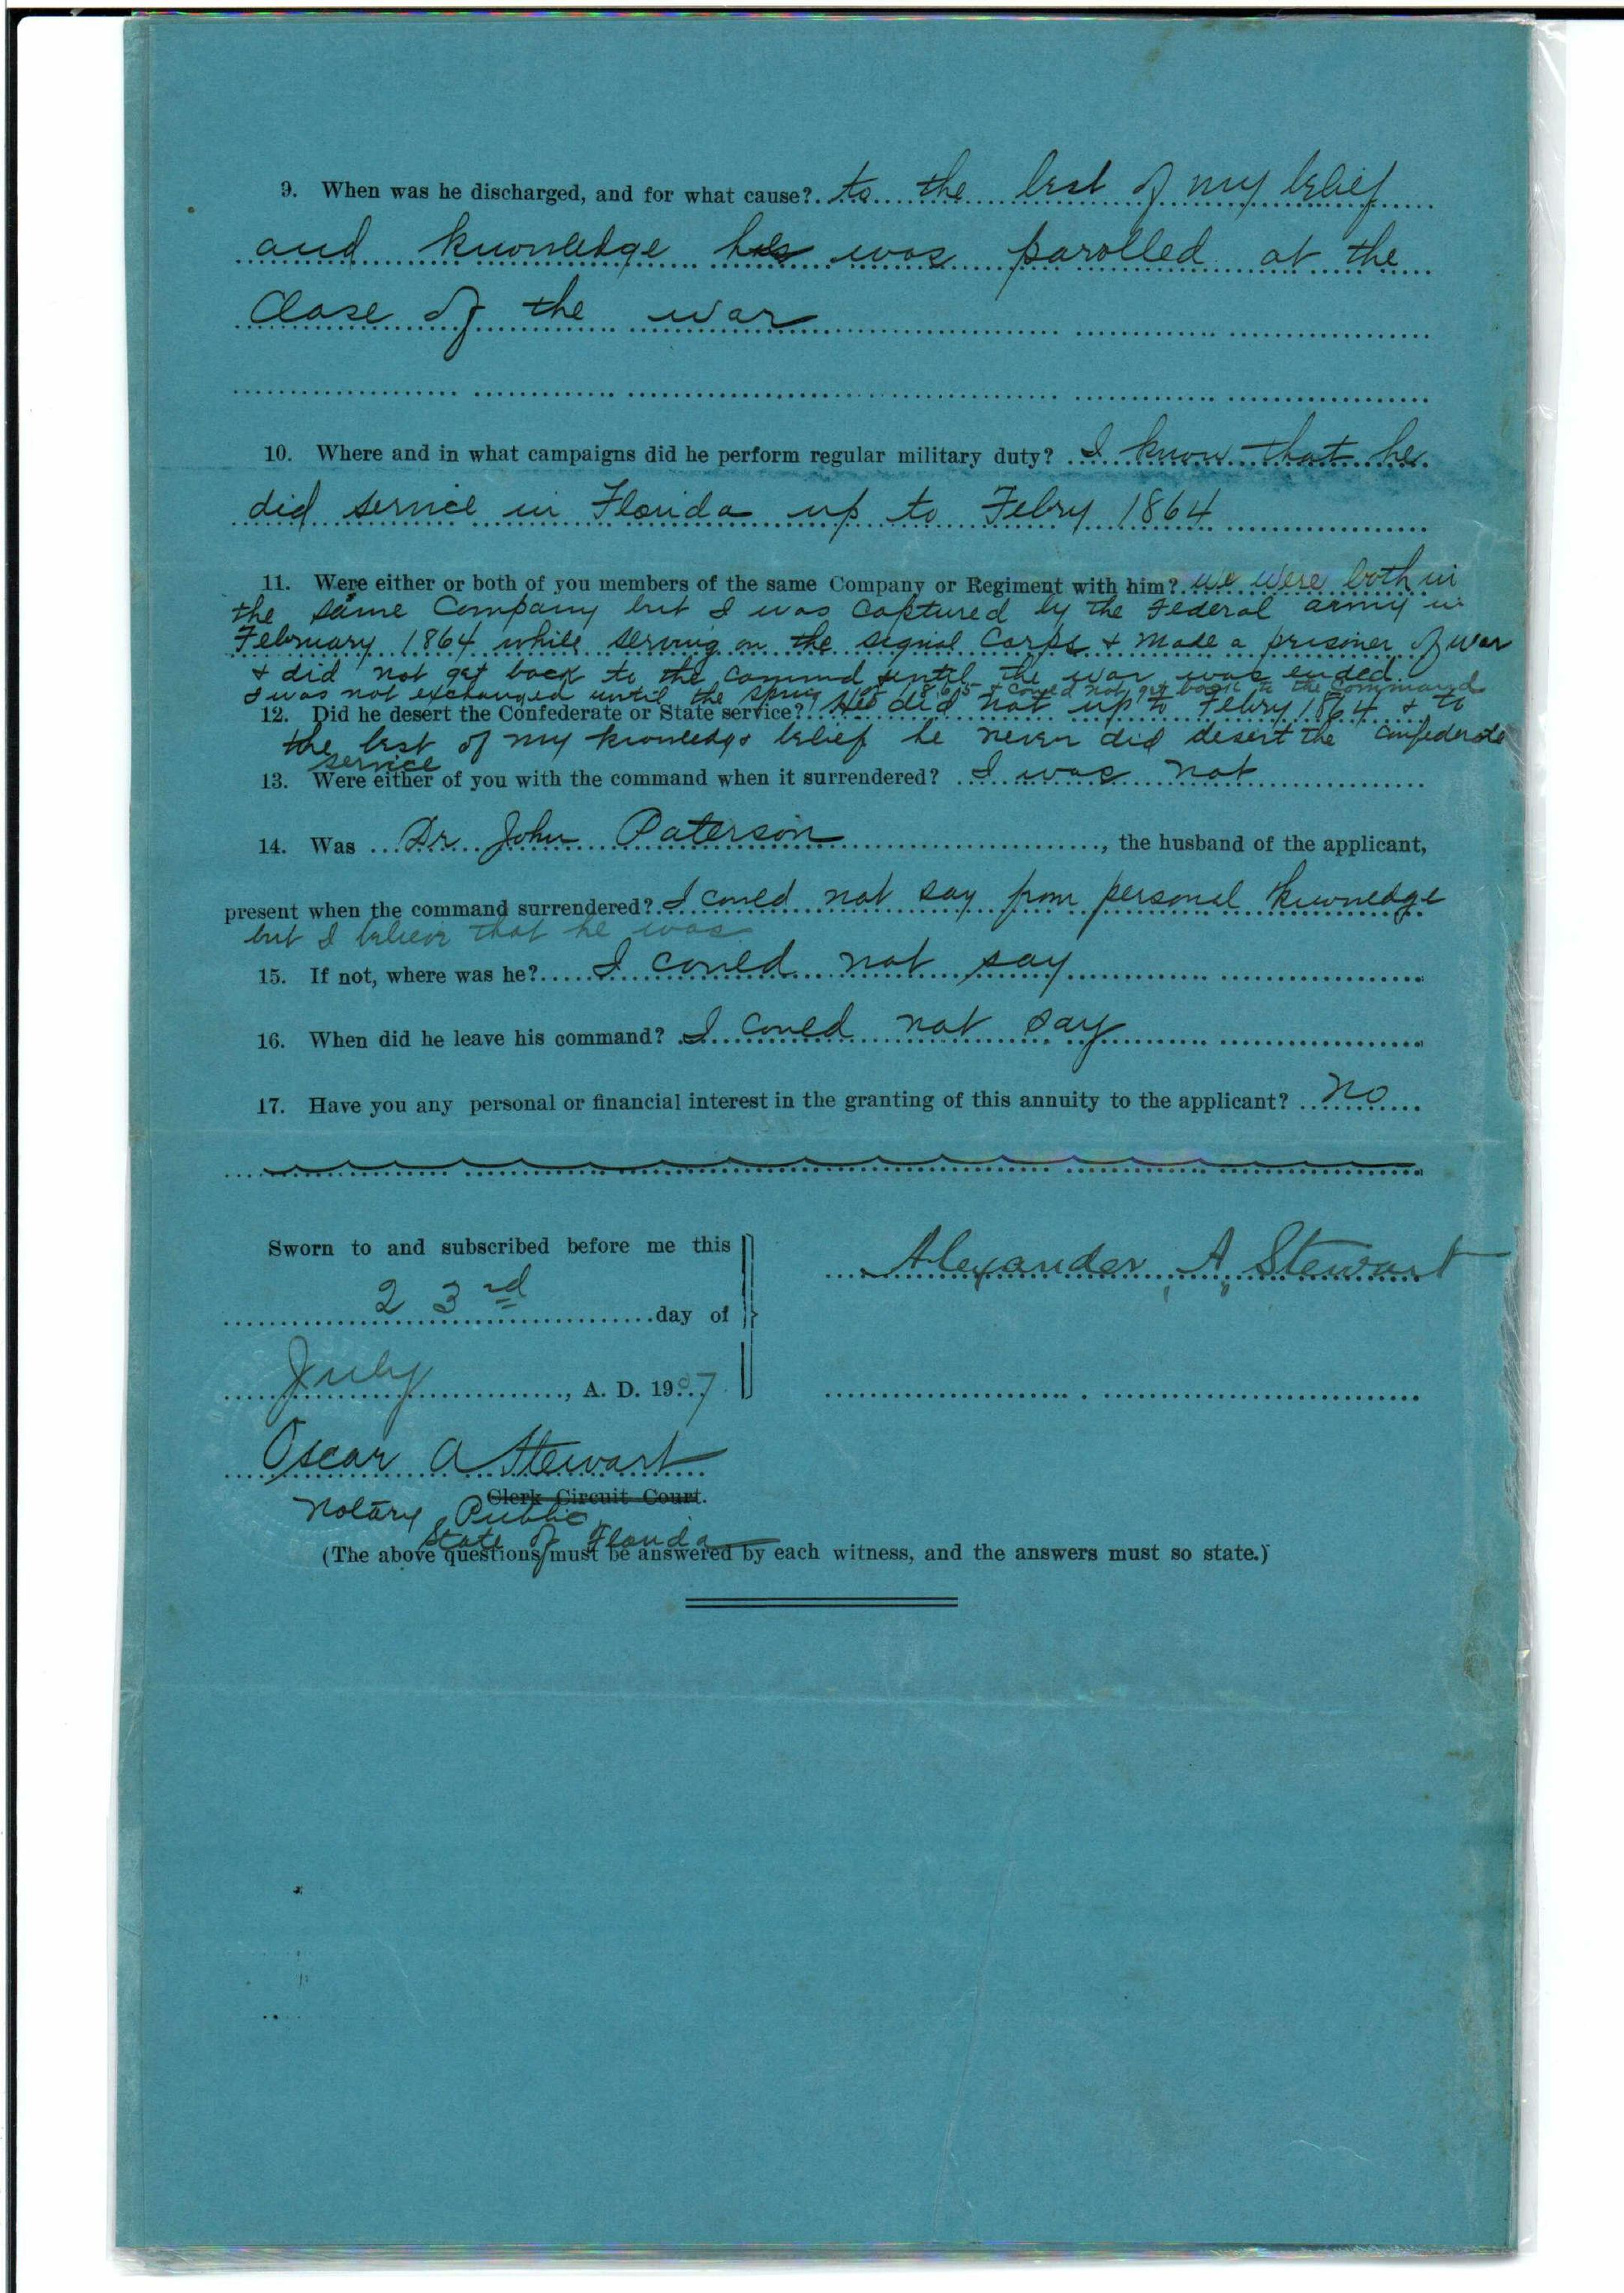 9. When was he discharged, and for what cause? to the best of my belief
and knowledge he was parolled at the
Close of the war
10. Where and in what campaigns did he perform regular military duty? I know that he
did service in Florida up to Febry 1864
11. Were either or both of you members of the same Company or Regiment with him? we were both in
the same Company but I was captured by the Federal army in
February 1864 while serving on the signal Corps & made a prisoner of war
& did not get back to the command until the war was ended.
I was not exchanged until the spring of 1865 & could not get back to the Command
12. Did he desert the Confederate or State service? He did not up to Febry 1864 & to
the best of my knowledge belief he never did desert the Confederate
service
13. Were either of you with the command when it surrendered? I was not
14. Was Dr. John Paterson, the husband of the applicant,
present when the command surrendered? I could not say from personal knowledge
but I believe that he was
15. If not, where was he? I could not say
16. When did he leave his command? I could not say
17. Have you any personal or financial interest in the granting of this annuity to the applicant? No
Sworn to and subscribed before me this
23rd day of
July, A. D. 1907
Alexander A. Stewart
Oscar A Stewart
Clerk Circuit Court.
Notary Public
State of Florida
(The above questions must be answered by each witness, and the answers must so state.)